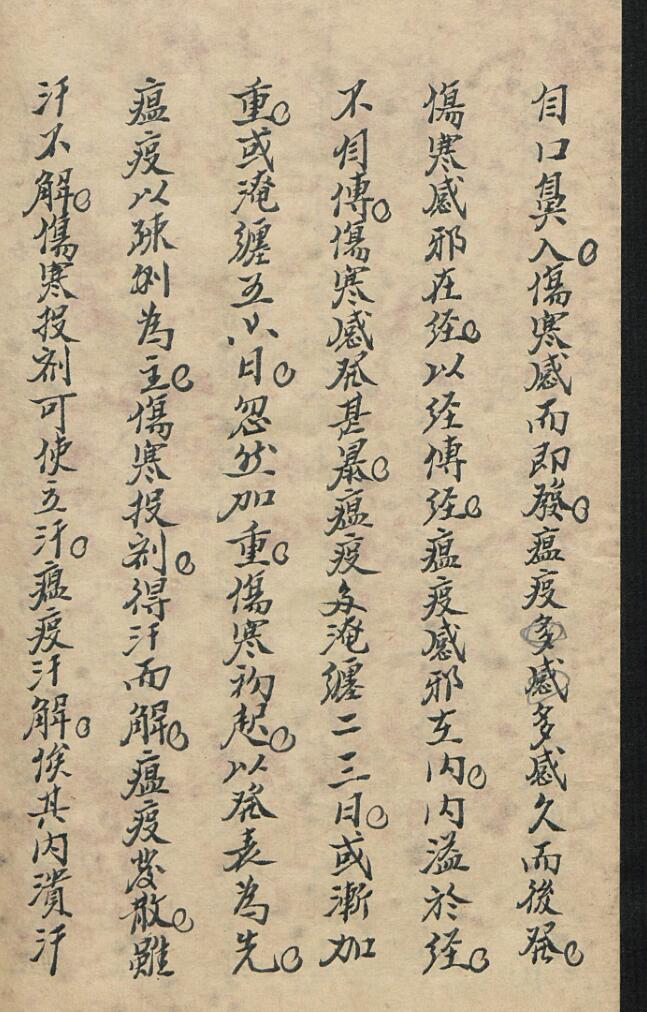 自口鼻入。傷寒感而即發。瘟疫多感多感久而後發。
傷寒感邪在經。以經傳經。瘟疫感邪在内。内溢於經。
不自傳。傷寒感發甚暴。瘟疫多淹纏二三日。或漸加
重。或淹纏五六日。忽然加重。傷寒初起。以發表為先。
瘟疫以疎利為主。傷寒投剂。得汗而解。瘟疫發散。雖
汗不解。傷寒投剂可使立汗。瘟疫汗解。俟其内潰汗